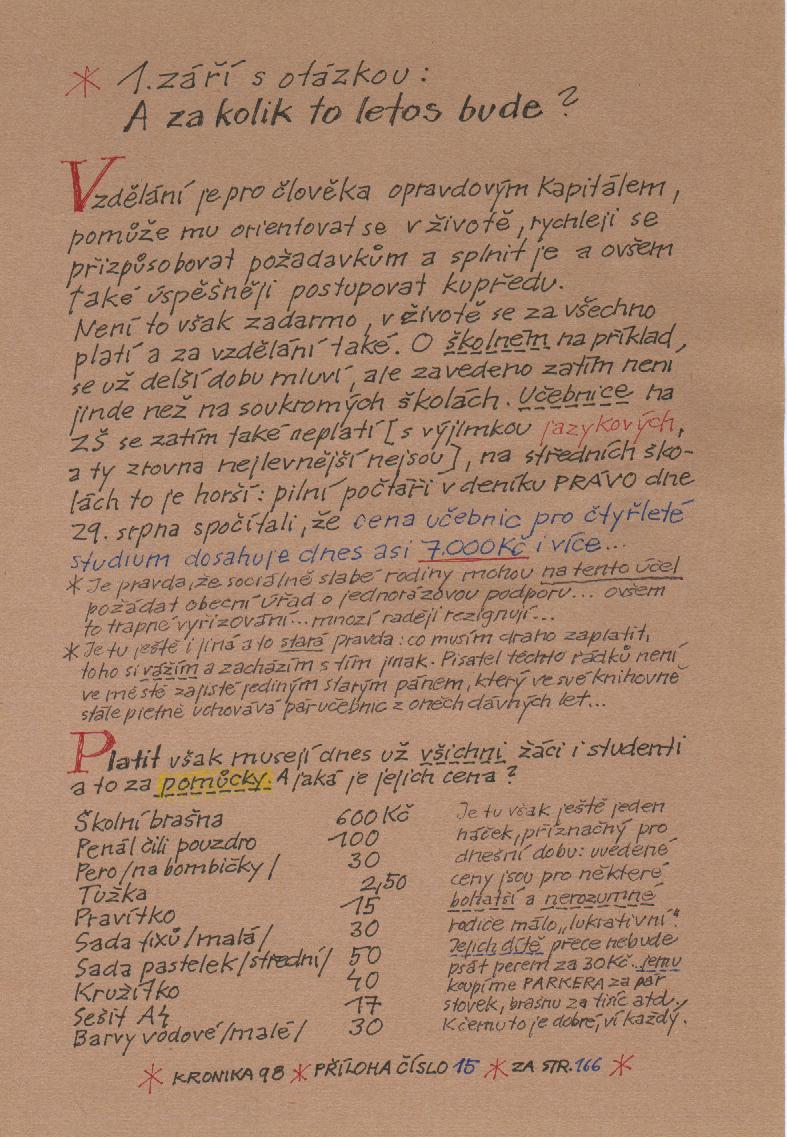 * 1. září s otázkou:
A za kolik to letos bude?
Vzdělání je pro člověka opravdovým kapitálem,
pomůže mu orientovat se v životě, rychleji se
přizpůsobovat požadavkům a splnit je a ovšem
také úspěšněji postupovat kupředu.
Není to však zadarmo, v životě se za všechno
platí a za vzdělání také. O školném na příklad,
se už delší dobu mluví, ale zavedeno zatím není
jinde než na soukromých školách. Učebnice na
ZŠ se zatím také neplatí [s výjimkou jazykových,
a ty zrovna nejlevnější nejsou], na středních ško-
lách to je horší: pilní počtáři v deníku PRÁVO dne
29. srpna spočítali, že cena učebnic pro čtyřleté
studium dosahuje dnes asi 7.000Kč i více...
* Je pravda, že sociálně slabé rodiny mohou na tento účel
požádat obecní úřad o jednorázovou podporu... ovšem
to trapné vyřizování... mnozí raději rezignují...
* Je tu ještě i jiná a to stará pravda: co musím draho zaplatit,
toho si vážím a zacházím s tím jinak. Pisatel těchto řádků není
ve městě zajisté jediným starým pánem, který ve své knihovně
stále pietně uchovává pár učebnic z oněch dávných let...
Platit však musejí dnes už všichni žáci i studenti
a to za pomůcky. A jaká je jejich cena?
Školní brašna 600 Kč
Penál čili pouzdro 100
Pero /na bombičky/ 30
Tužka 2,50
Pravítko 15
Sada fixů /malá/ 30
Sada pastelek /střední/ 50
Kružítko 40
Sešit A4 17
Barvy vodové /malé/ 30
Je tu však ještě jeden
háček, příznačný pro
dnešní dobu: uvedené
ceny jsou pro některé
bohatší a nerozumné
rodiče málo „lukrativní".
Jejich dítě přece nebude
psát perem za 30Kč.. jemu
koupíme PARKERA za pár
stovek, brašnu za tisíc atd.,
K čemu to je dobré, ví každý.
* KRONIKA 98 * PŘÍLOHA ČÍSLO 15 * ZA STR. 166 *